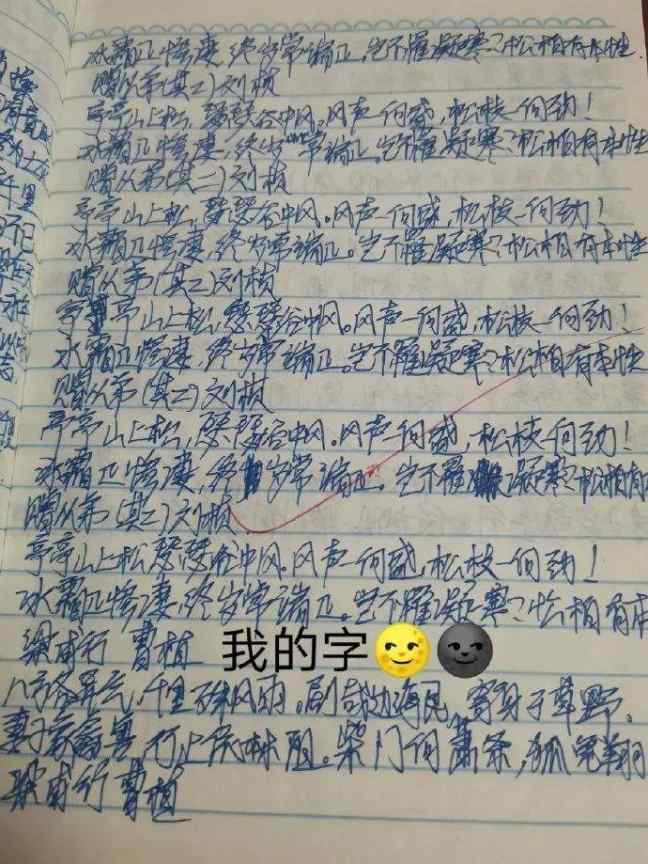 冰霜正惨凄,终岁常端正。岂不罹凝寒?松柏有本性
赠从弟(其二)刘桢
亭亭山上松,瑟瑟谷中风。风声一何盛,松枝一何劲!
冰霜正惨凄,终岁常端正。岂不罹凝寒?松柏有本性
赠从弟(其二)刘桢
亭亭山上松,瑟瑟谷中风。风声一何盛,松枝一何劲!
冰霜正惨凄,终岁常端正。岂不罹凝寒?松柏有本性
赠从弟(其二)刘桢
亭亭山上松,瑟瑟谷中风。风声一何盛,松枝一何劲!
冰霜正惨凄,终岁常端正。岂不罹凝寒?松柏有本性
赠从弟(其二)刘桢
亭亭山上松,瑟瑟谷中风。风声一何盛,松枝一何劲!
冰霜正惨凄,终岁常端正。岂不罹凝寒?松柏有
赠从弟(其二)刘桢
亭亭山上松瑟瑟谷中风。风声一何盛,松枝一何劲!
冰霜正惨凄,终岁常端正。岂不罹凝寒?松柏有本
梁甫行 曹植
我的字
八方各异气,千里殊风雨。剧哉边海民,寄身于草野。
妻子象禽兽,行止依林阻。柴门何萧条,狐兔翔
梁甫行 曹植